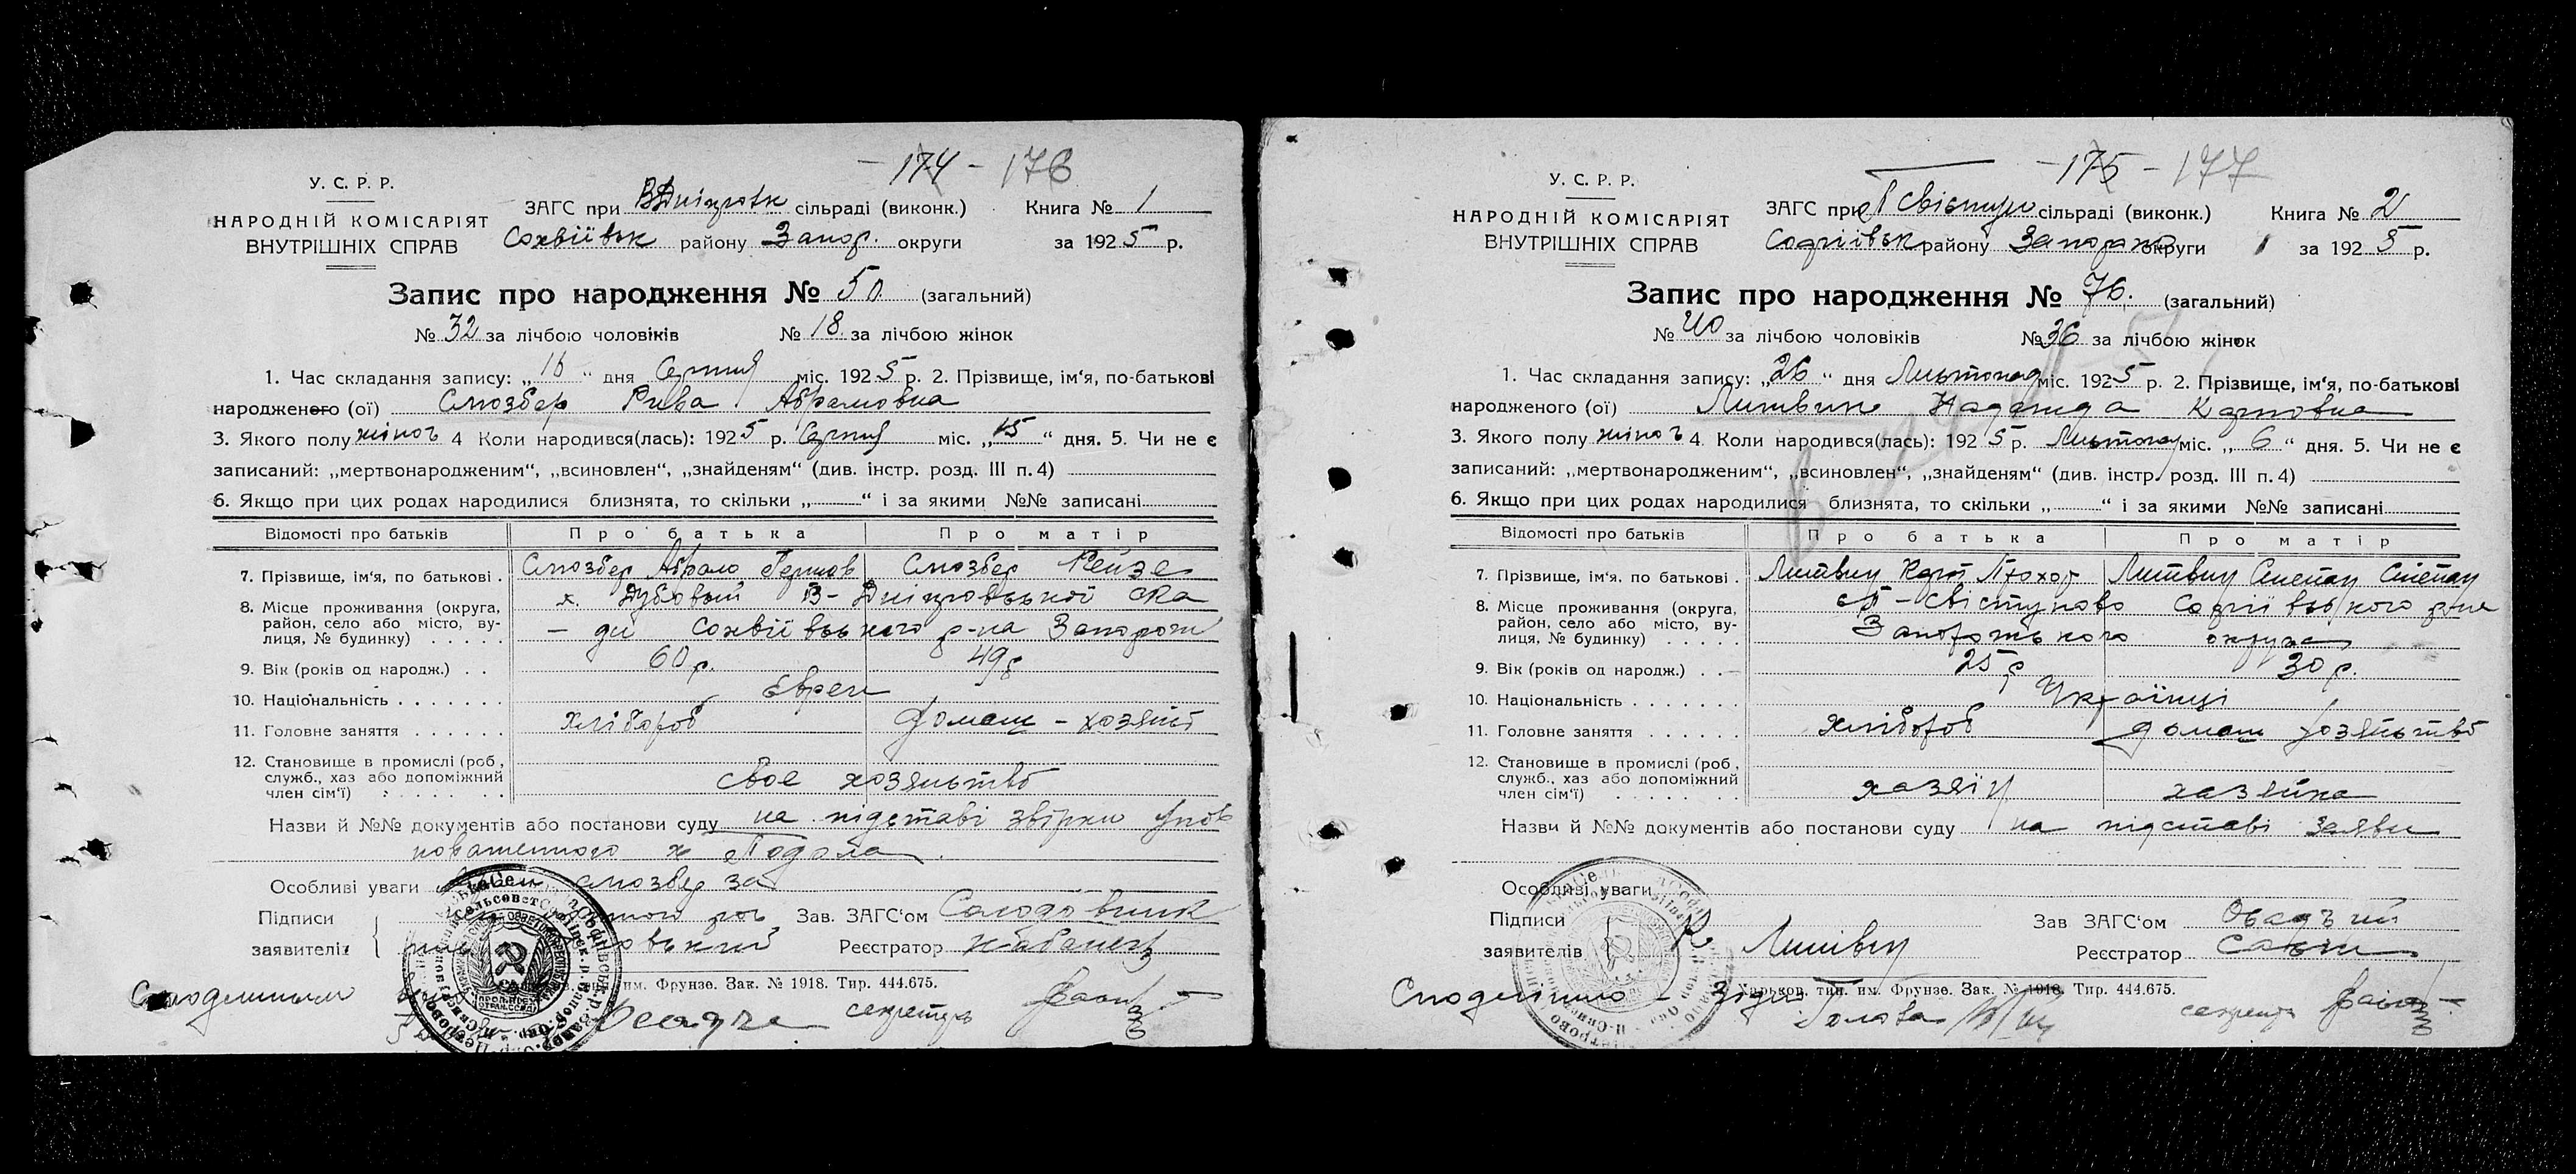 - 174 - 176
У. С. Р. Р.
НАРОДНІЙ КОМІСАРІЯТ
ВНУТРІШНІХ СПРАВ
ЗАГС при ВДніпровск сільраді (виконк.) Книга № 1
Сохвіївськ району Запор. округи за 1925 р.
Запис про народження № 50 (загальний)
№ 32 за лічбою чоловіків № 18 за лічбою жінок
1. Час складання запису: „16“ дня Серпня міс. 1925 р. 2. Прізвище, ім‘я, по-батькові
народженого (ої) Смозбер Рива Абрамовна
3. Якого полу жіноч 4 Коли народився(лась): 1925 р. Серпня міс. „15“ дня. 5. Чи не є
записаний: „мертвонародженим“, „всиновлен“, „знайденям“ (див. інстр. розд. III п. 4)
6. Якщо при цих родах народилися близнята, то скільки „ “ і за якими №№ записані
Відомості про батьків Про батька Про матір
7. Прізвище, ім‘я, по батькові . Смозбер Абрам Гершов Смозбер Рейзе
8. Місце проживання (округа, район, село або місто, вулиця, № будинку) х. Дубовый В-Дніпровської сRa
- ди Сохвіївського р-на Запорож
9. Вік (років од народж.) . . 60 р. 49 р
10. Національність . . . . . . . Євреи
11. Головне заняття . . . . . . Хлібороб домаш - хозяйст
12. Становище в промислі (роб., служб., хаз або допоміжний член сім‘ї) свое хозяйство
Назви й №№ документів або постанови суду на підставі звірки упов
новаженного х Подола
Особливі уваги смозбер за
Підписи заявителів Зав. ЗАГС‘ом Солодовник
Реєстратор
им. Фрунзе. Зак. № 1918. Тир. 444.675.
секретарь
- 175 - 177
У. С. Р. Р.
НАРОДНІЙ КОМІСАРІЯТ
ВНУТРІШНІХ СПРАВ
ЗАГС при П Свістуно сільраді (виконк.) Книга № 2
Софіївськ району Запорожс округи за 1925 р.
Запис про народження № 76. (загальний)
№ 40 за лічбою чоловіків № 36 за лічбою жінок
1. Час складання запису: „26“ дня Листопад міс. 1925 р. 2. Прізвище, ім‘я, по-батькові
народженого (ої) Литвин Надежда Карповна
3. Якого полу жіноч 4. Коли народився(лась): 1925 р. Листопад міс. „6“ дня. 5. Чи не є
записаний: „мертвонародженим“, „всиновлен“, „знайденям“ (див. інстр. розд. III п. 4)
6. Якщо при цих родах народилися близнята, то скільки „ “ і за якими №№ записані
Відомості про батьків Про батька Про матір
7. Прізвище, ім‘я. по батькові . Литвин Карп Прохор Литвин Степан
8. Місце проживання (округа, район, село або місто, вулиця, № будинку) сП-Свістуново Софіївського р-на
Запорожського округа
9. Вік (років од народж.) . . 25 р 30 р.
10. Національність . . . . . . . Українці
11. Головне заняття . . . . . . Хлібороб домаш хозяйство
12. Становище в промислі (роб., служб., хаз або допоміжний член сім‘ї) хазяїн хазяйка
Назви й №№ документів або постанови суду на підставі заяви
Особливі уваги
Підписи заявителів К. Литвин Зав ЗАГС‘ом
Реєстратор
Харьков. тип. им. Фрунзе. Зак. № 1918. Тир. 444.675.
Голова секретарь